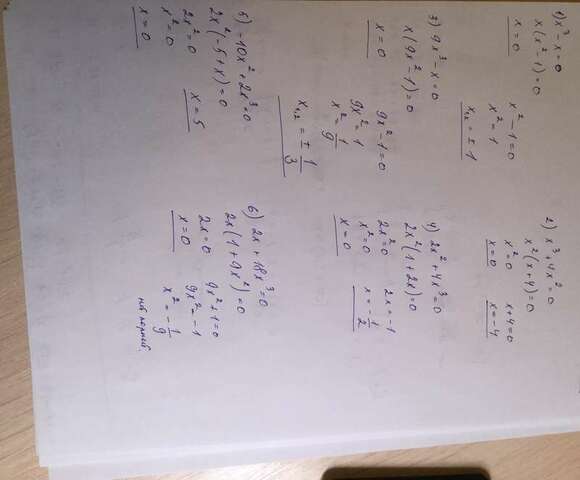 1) x³ - x = 0
x(x² - 1) = 0
x = 0
x² - 1 = 0
x² = 1
x₁,₂ = ± 1
2) x³ + 4x² = 0
x²(x + 4) = 0
x² = 0
x = 0
x + 4 = 0
x = -4
3) 9x³ - x = 0
x(9x² - 1) = 0
x = 0
9x² - 1 = 0
9x² = 1
x² = 1/9
x₁,₂ = ± 1/3
4) 2x² + 4x³ = 0
2x²(1 + 2x) = 0
2x² = 0
x² = 0
x = 0
2x = -1
x = -1/2
5) -10x² + 2x³ = 0
2x²(-5 + x) = 0
2x² = 0
x² = 0
x = 0
x = 5
6) 2x + 18x³ = 0
2x(1 + 9x²) = 0
2x = 0
x = 0
9x² + 1 = 0
9x² = -1
x² = -1/9